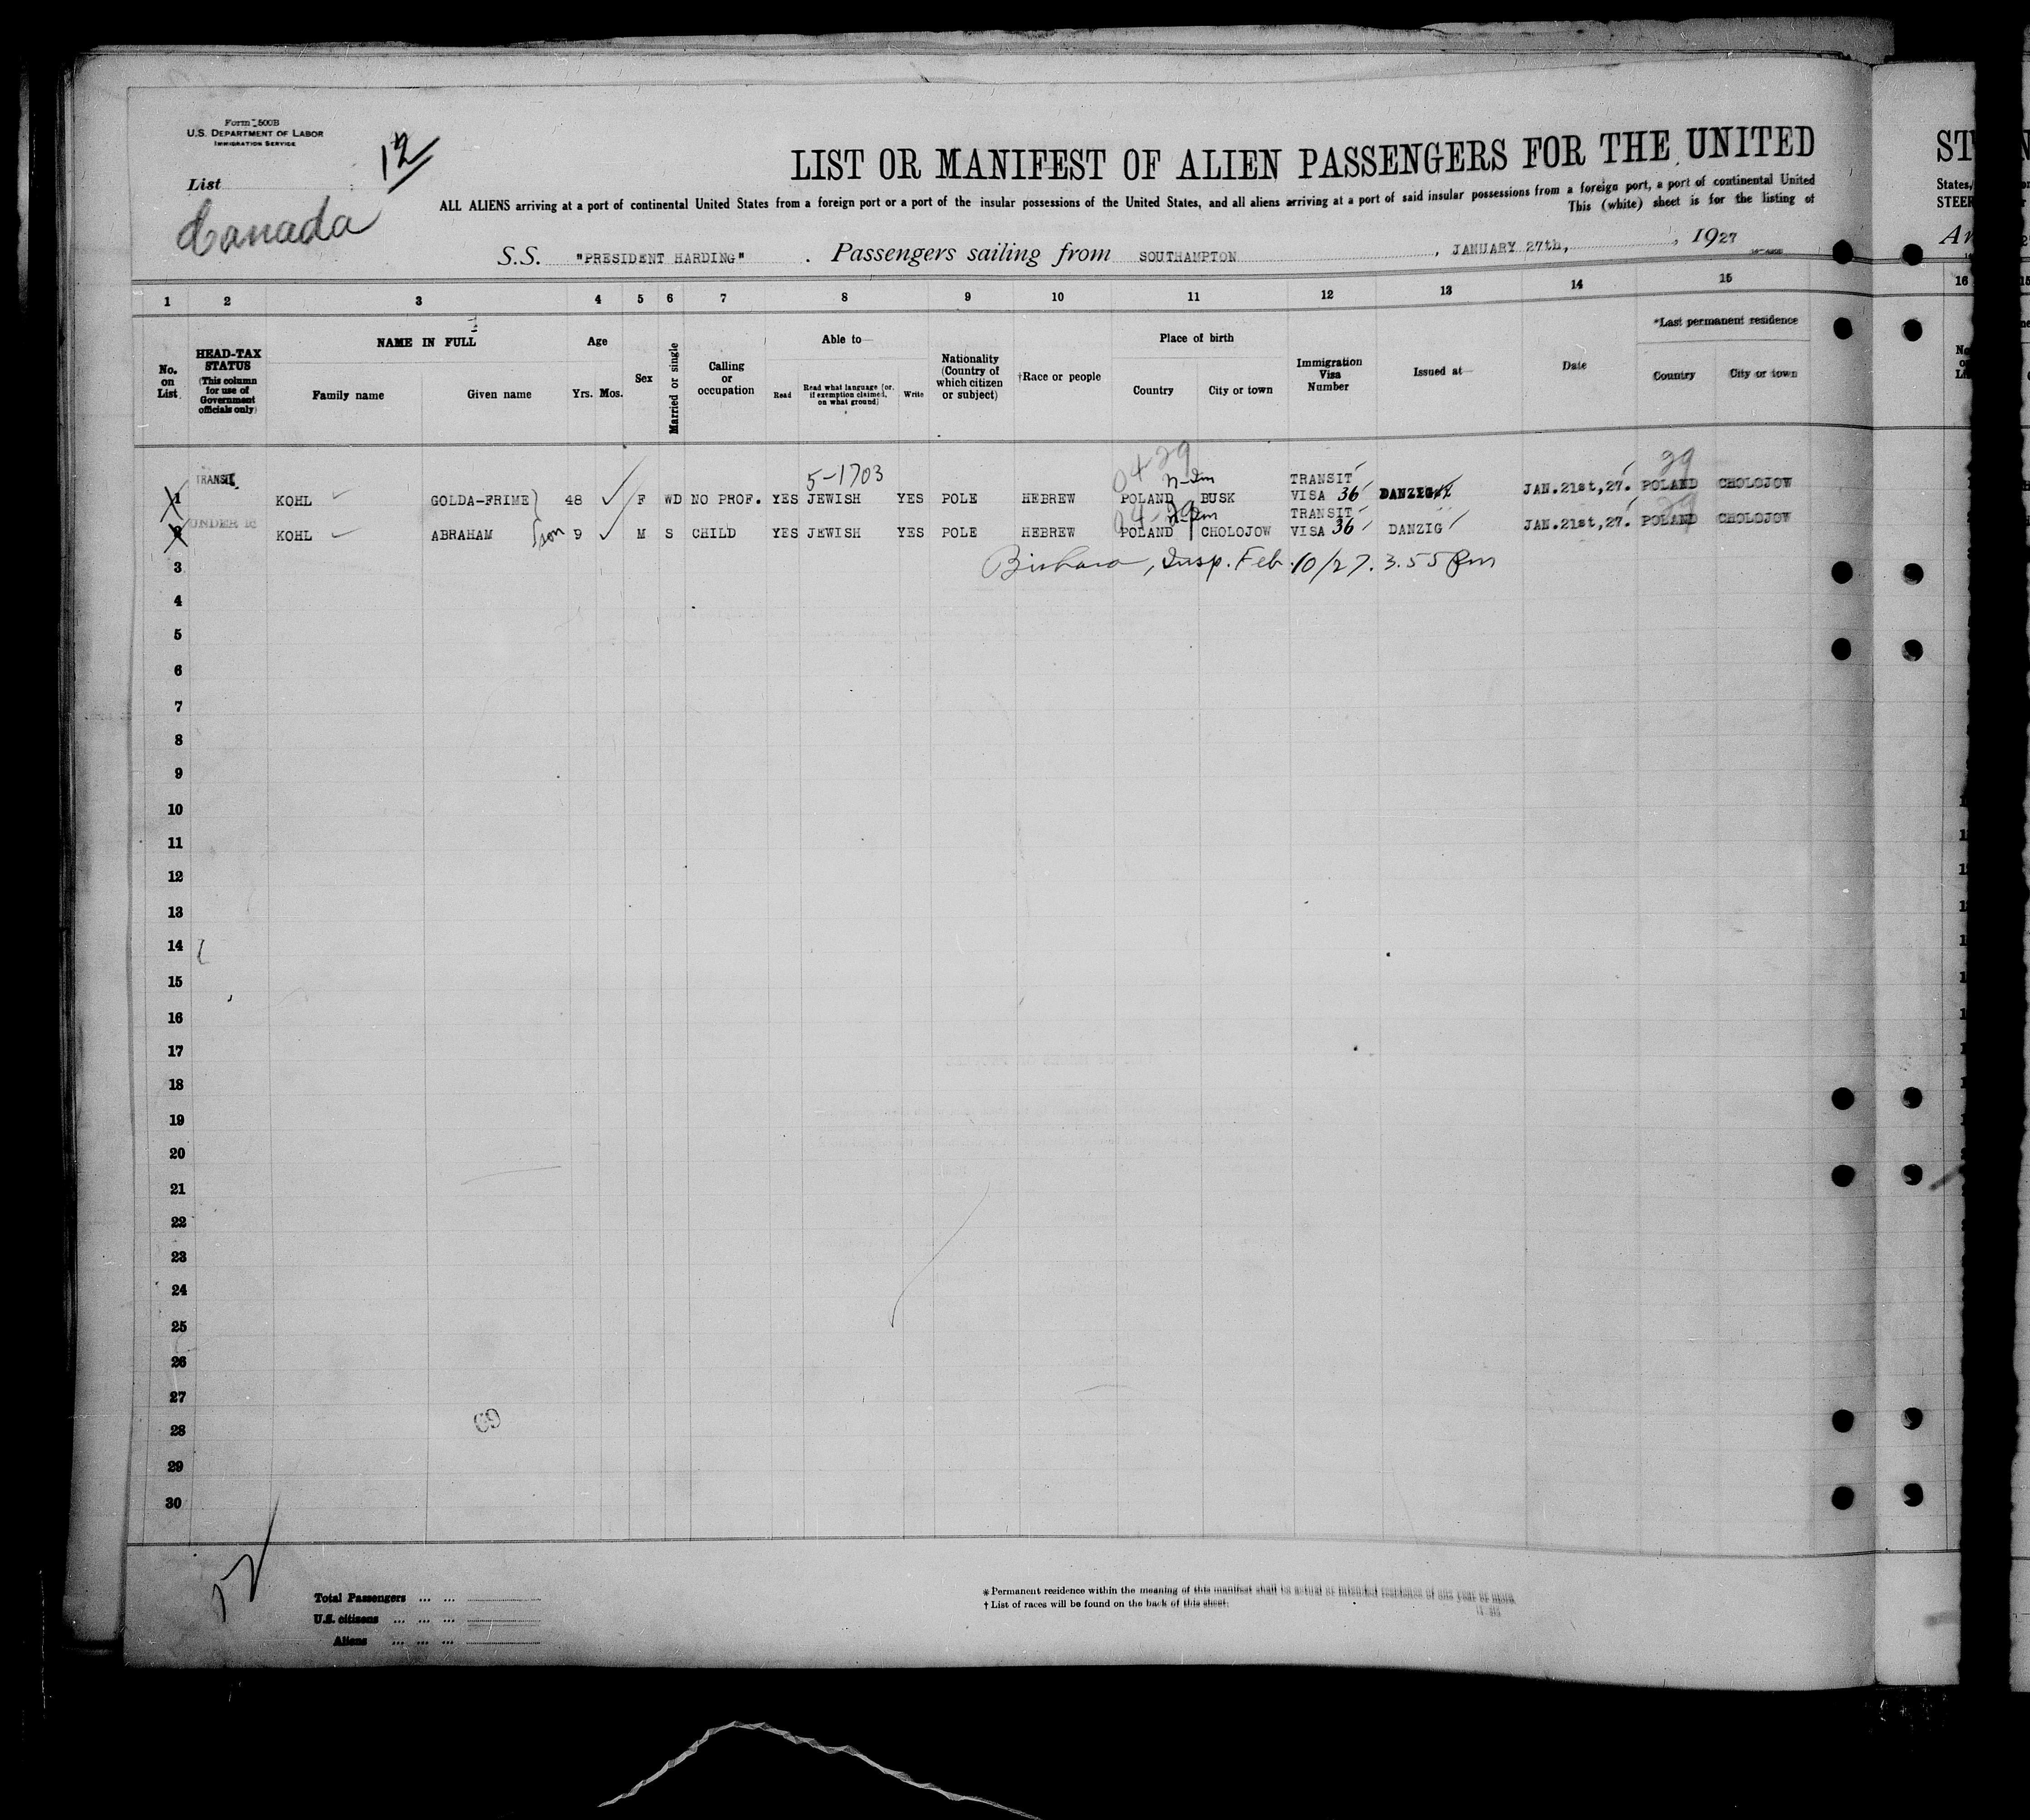 Form 500B
U.S. DEPARTMENT OF LABOR
IMMIGRATION SERVICE
12
List
Canada
LIST OR MANIFEST OF ALIEN PASSENGERS FOR THE UNITED
ALL ALIENS arriving at a port of continental United States from a foreign port or a port of the insular possessions of the United States, and all aliens arriving at a port of said insular possessions from a foreign port, a port of continental United
This (white) sheet is for the listing of
S.S. "PRESIDENT HARDING" . Passengers sailing from SOUTHAMPTON , JANUARY 27th, , 1927
1 2 3 4 5 6 7 8 9 10 11 12 13 14 15
No. on List
HEAD-TAX STATUS (This column for use of Government officials only)
NAME IN FULL
Family name Given name
Age
Yrs. Mos.
Sex
Married or single
Calling or occupation
Able to
Read Read what language (or, if exemption claimed, on what ground) Write
Nationality (Country of which citizen or subject)
†Race or people
Place of birth
Country City or town
Immigration Visa Number
Issued at
Date
*Last permanent residence
Country City or town
5-1703 04-29 29
TRANSIT TRANSIT
1 KOHL GOLDA-FRIME 48 F WD NO PROF. YES JEWISH YES POLE HEBREW POLAND BUSK VISA 36 DANZIG JAN.21st,27. POLAND CHOLOJOW
UNDER 16 04-29 TRANSIT 29
2 KOHL ABRAHAM son 9 M S CHILD YES JEWISH YES POLE HEBREW POLAND CHOLOJOW VISA 36 DANZIG JAN.21st,27. POLAND CHOLOJOW
3 Insp. Feb. 10/27. 3.55 pm
4
5
6
7
8
9
10
11
12
13
14
15
16
17
18
19
20
21
22
23
24
25
26
27
28
29
30
Total Passengers ... ...
U.S. citizens ... ... ...
Aliens ... ... ...
* Permanent residence within the meaning of this manifest shall be actual or intended residence of one year or more.
† List of races will be found on the back of this sheet.
ST
States,
STEER
16